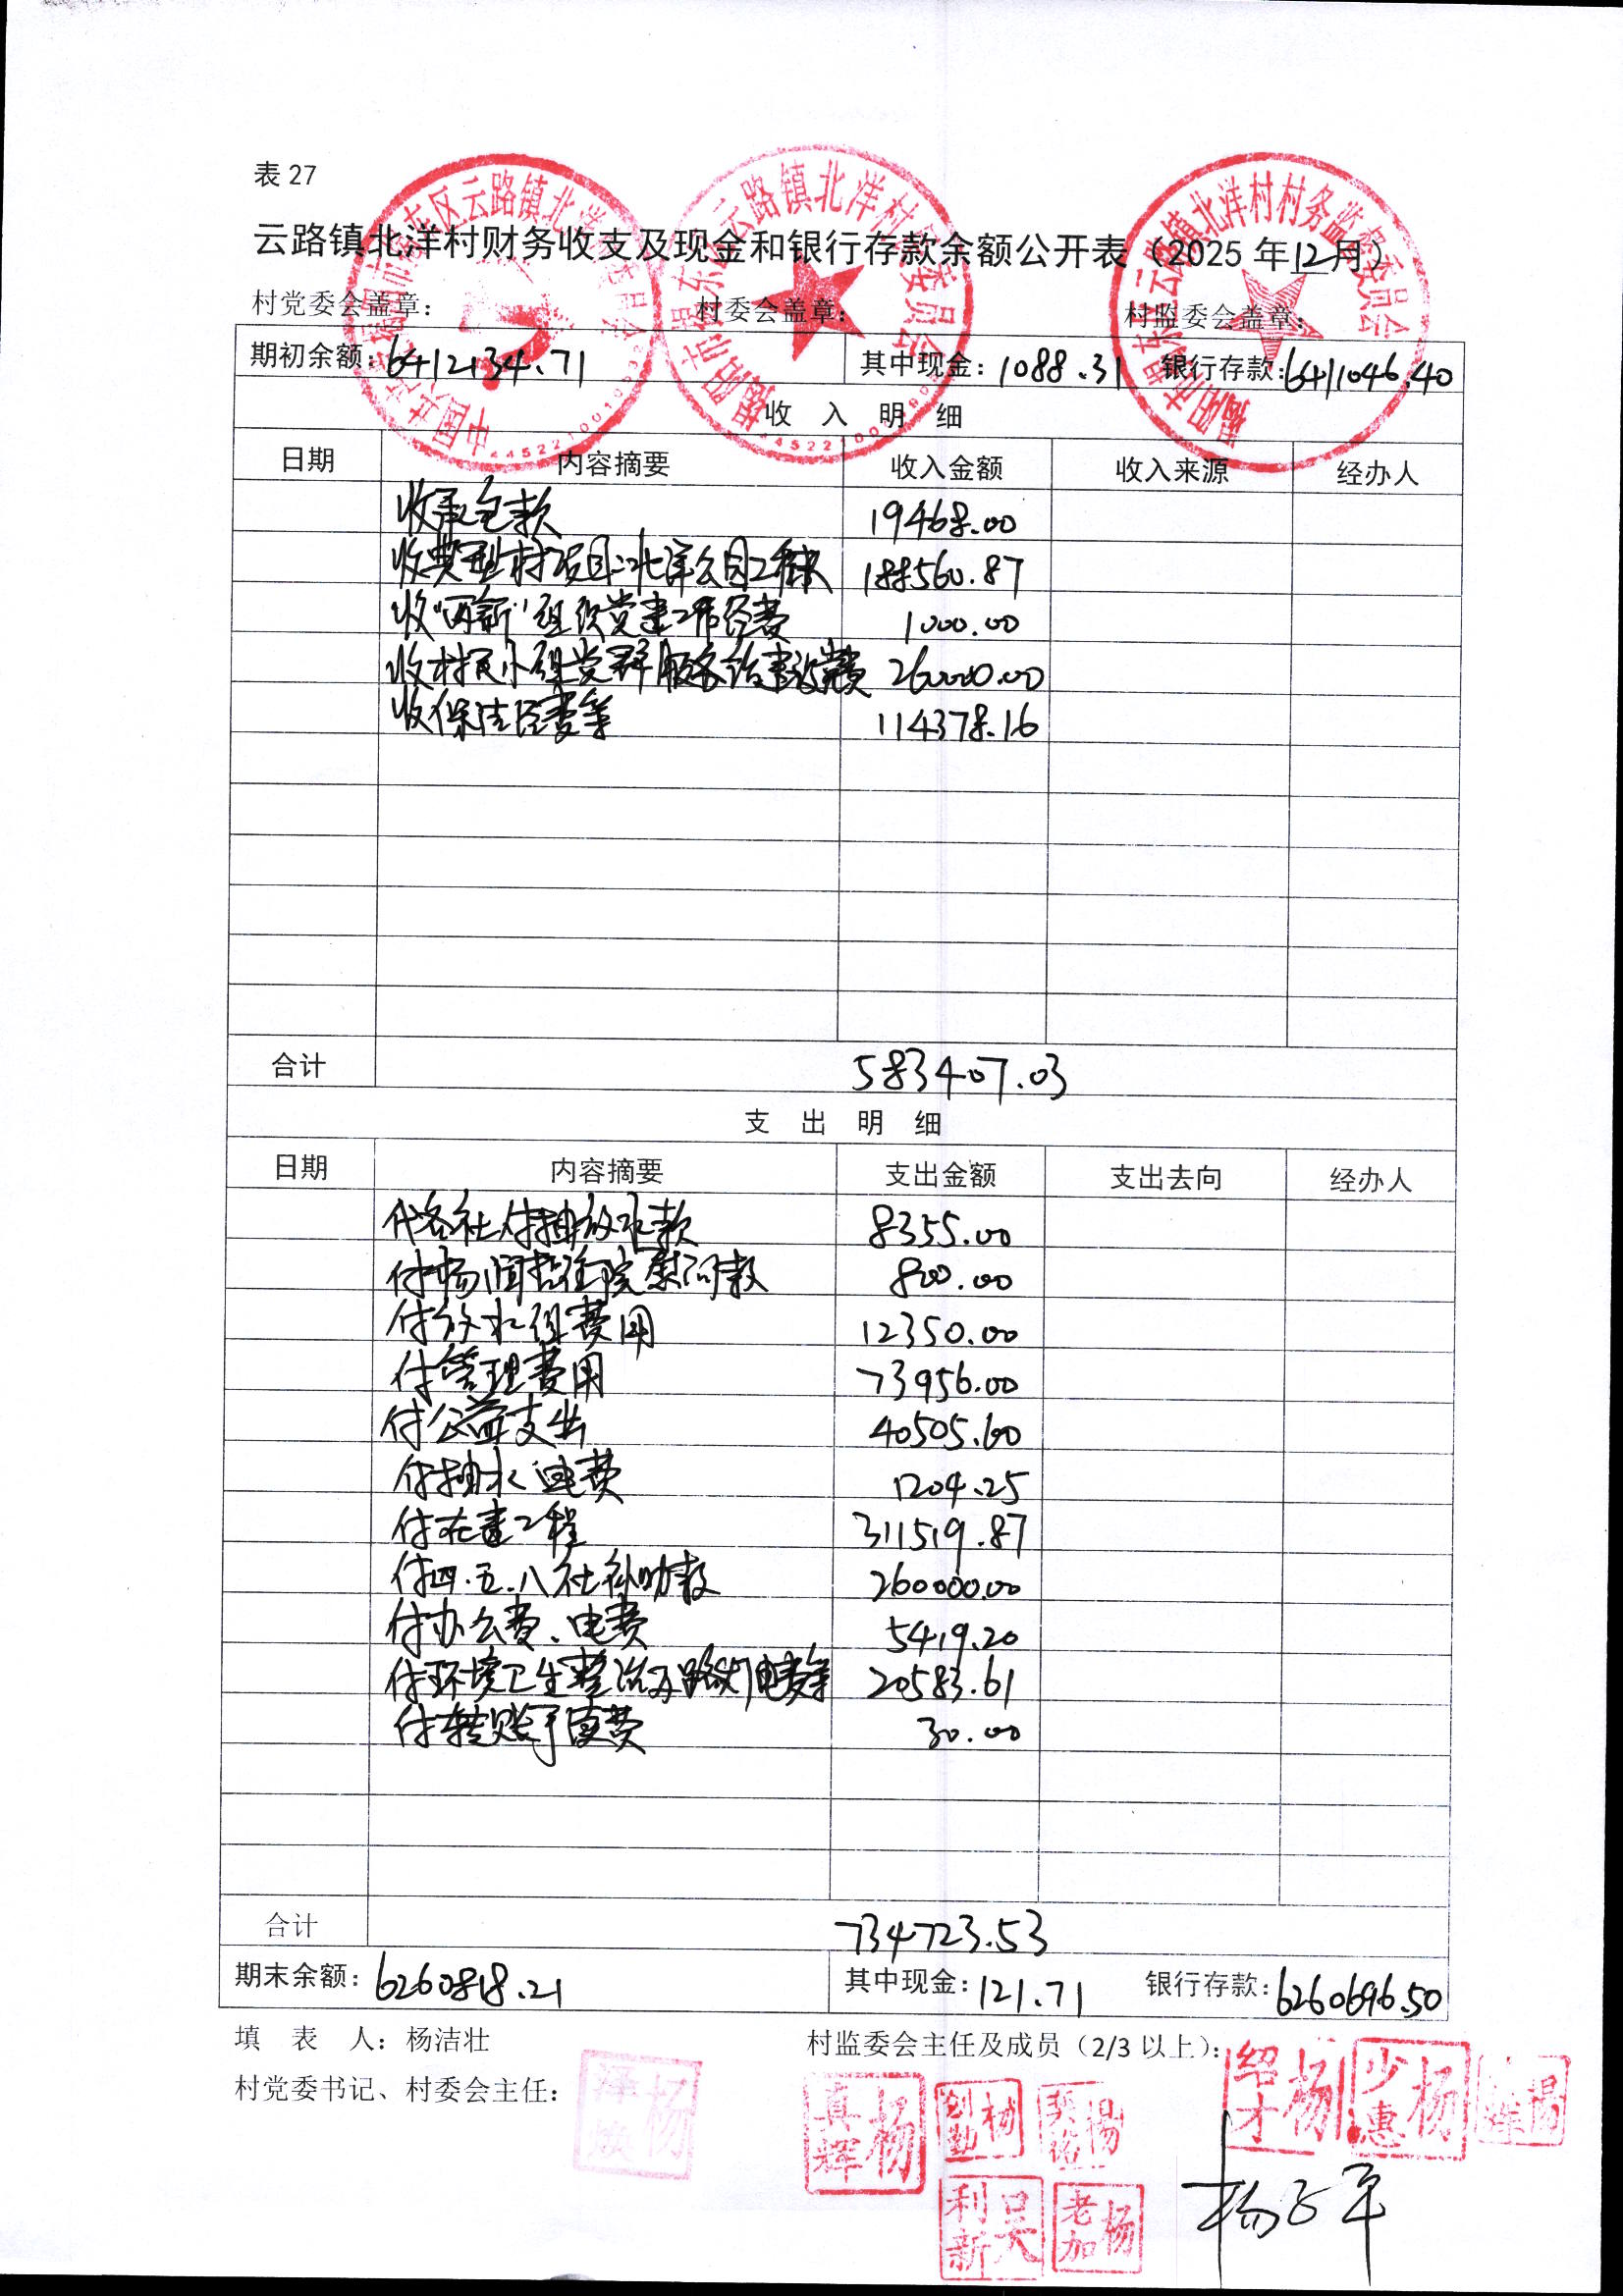 表 27
云路镇北洋村财务收支及现金和银行存款余额公开表（2025 年12月）
村党委会盖章： 村委会盖章： 村监委会盖章：
期初余额：6412134.71 其中现金：1088.31 银行存款：6411046.40
收 入 明 细
日期 内容摘要 收入金额 收入来源 经办人
收承包款 19468.00
收典型村项目:北洋公园工程款 188560.87
收“两新”组织党建工作经费 1000.00
收村民小组党群服务站建设费 260000.00
收保洁经费等 114378.16
合计 583407.03
支 出 明 细
日期 内容摘要 支出金额 支出去向 经办人
代各社付抽放水款 8355.00
付杨闻哲住院慰问款 800.00
付放水组费用 12350.00
付管理费用 73956.00
付公益支出 40505.60
付抽水电费 1204.25
付在建工程 311519.87
付四.五.八社补助款 260000.00
付办公费、电费 5419.20
付环境卫生整治及路灯电费等 20583.61
付转账手续费 30.00
合计 734723.53
期末余额：6260818.21 其中现金：121.71 银行存款：6260696.50
填 表 人：杨洁壮 村监委会主任及成员（2/3 以上）：
村党委书记、村委会主任：
杨泽焕
杨真辉
杨绍才
杨少惠
吴利新
杨老加